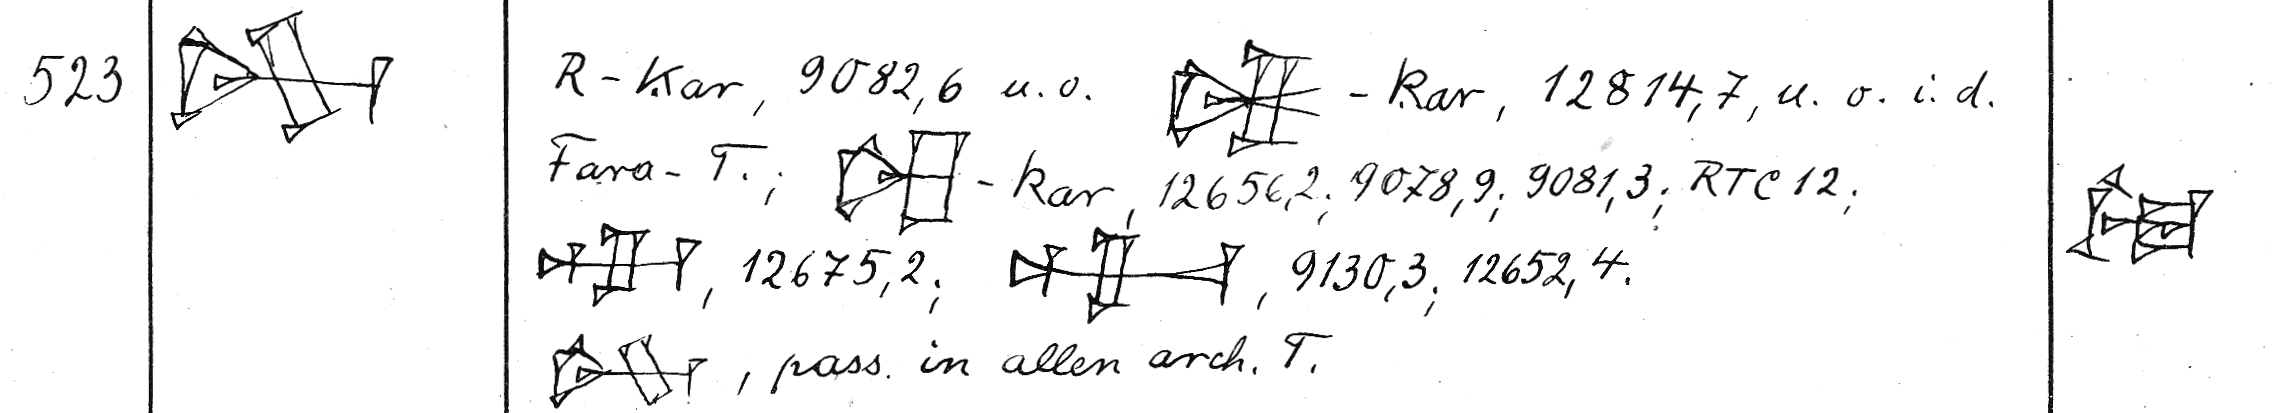 523
R-Kar, 9082,6 u.o. -kar, 12814,7, u. o. i. d.
Fara-T.; -kar, 12656,2; 9078,9; 9081,3; RTC 12;
, 12675,2; , 9130,3; 12652,4.
, pass. in allen arch. T.